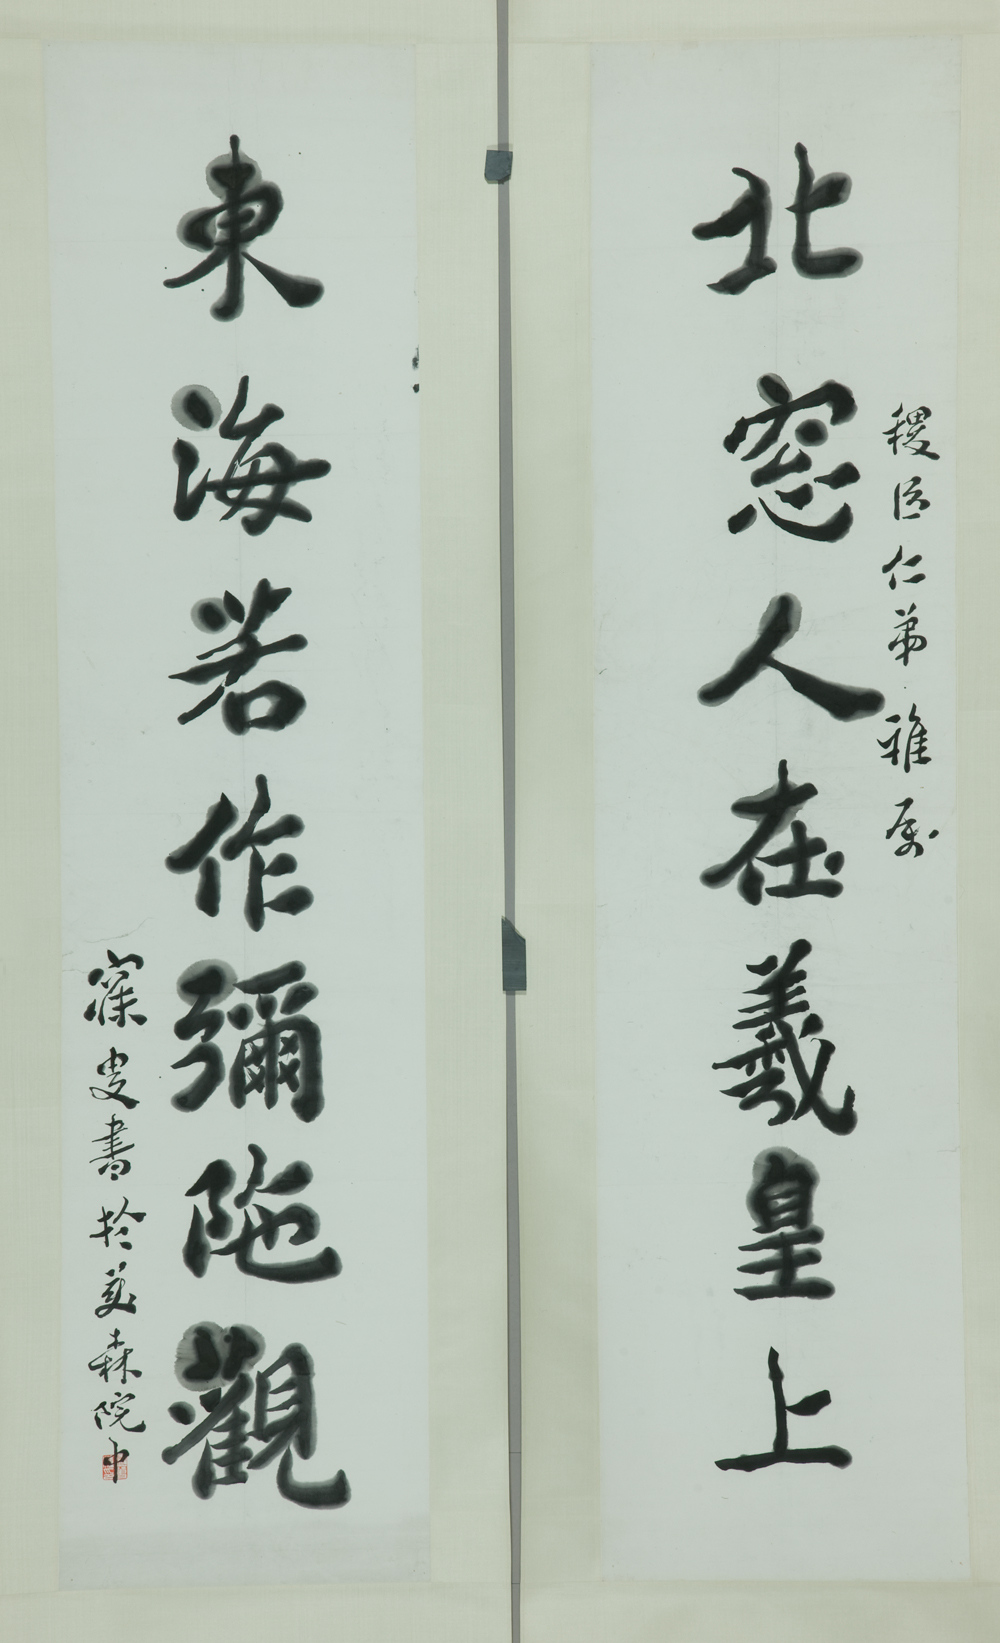 北窓人在羲皇上
稷臣仁弟雅屬
東海若作彌陁觀
寐叟書於美森院中